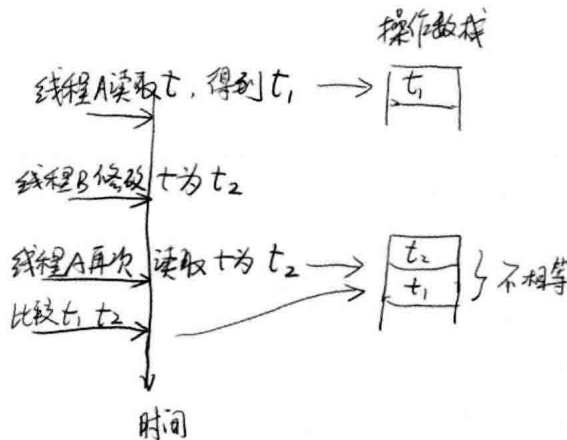 操作数栈
线程A读取t，得到t₁
t₁
线程B修改t为t₂
线程A再次读取t为t₂
t₂
t₁
不相等
比较t₁ t₂
时间